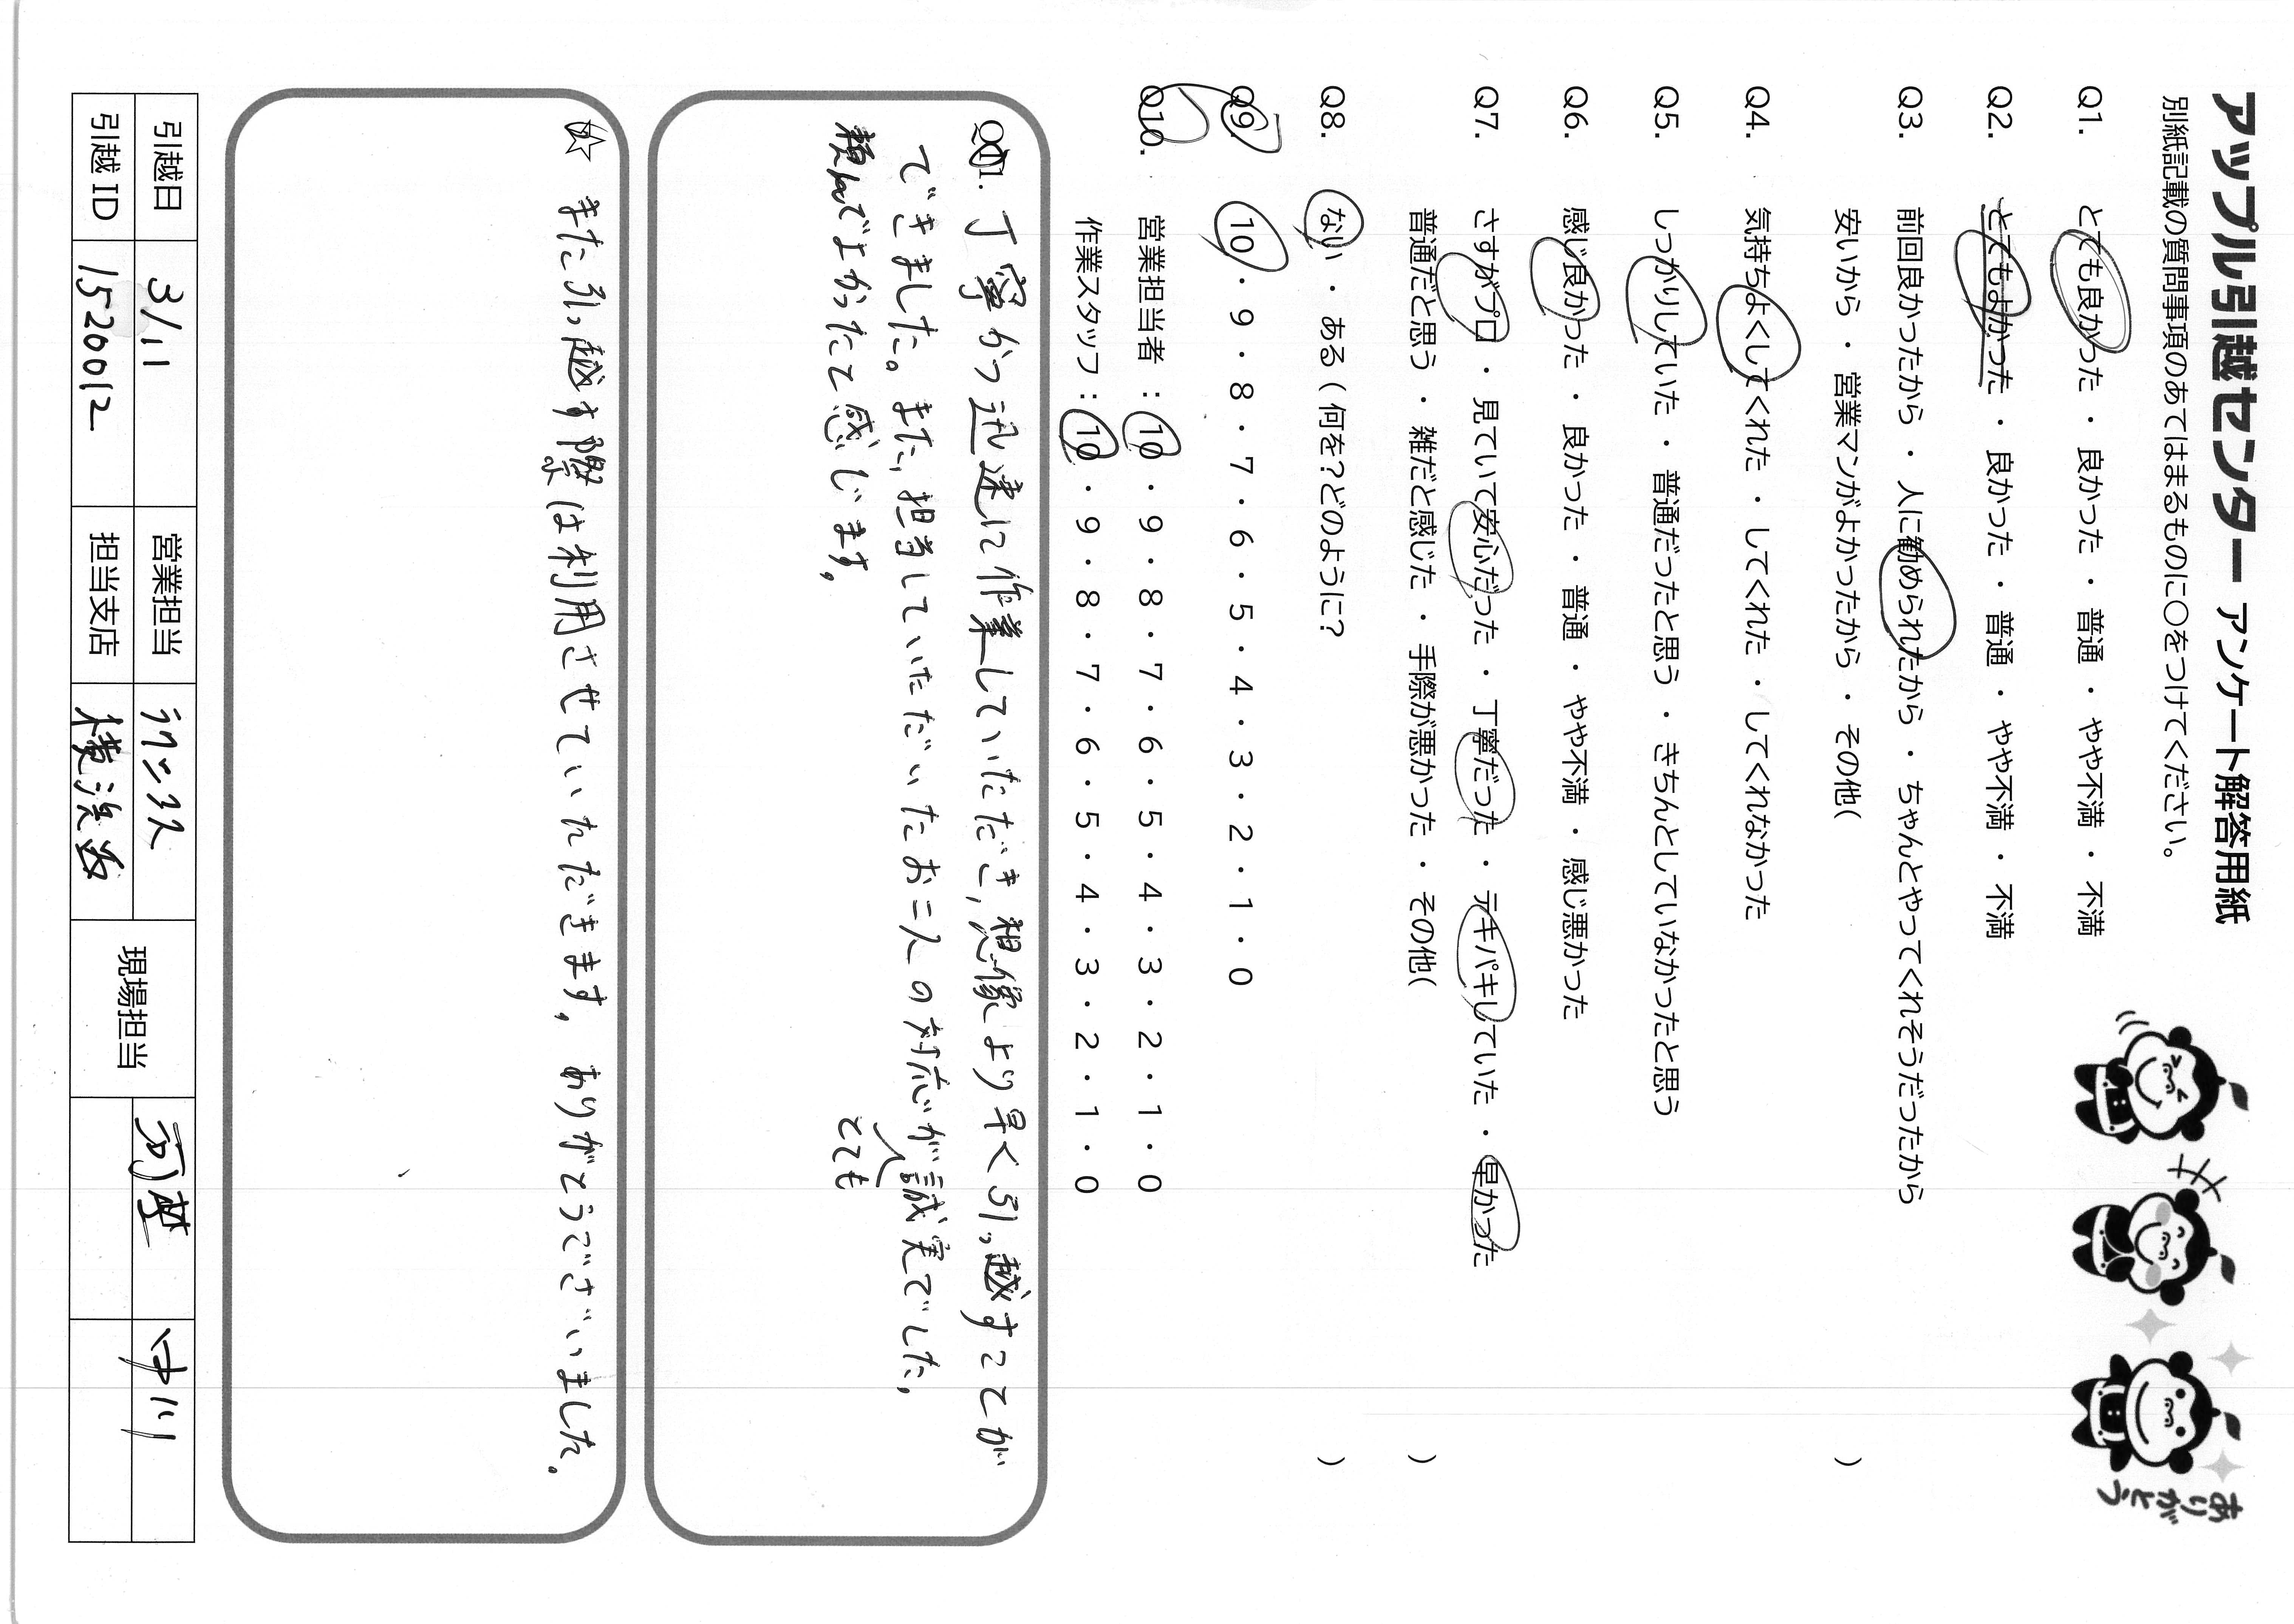 アップル引越センター アンケート解答用紙
別紙記載の質問事項のあてはまるものに○をつけてください。
ありがとう
Q1. とても良かった ・ 良かった ・ 普通 ・ やや不満 ・ 不満
Q2. とてもよかった ・ 良かった ・ 普通 ・ やや不満 ・ 不満
Q3. 前回良かったから ・ 人に勧められたから ・ ちゃんとやってくれそうだったから
安いから ・ 営業マンがよかったから ・ その他( )
Q4. 気持ちよくしてくれた ・ してくれた ・ してくれなかった
Q5. しっかりしていた ・ 普通だったと思う ・ きちんとしていなかったと思う
Q6. 感じ良かった ・ 良かった ・ 普通 ・ やや不満 ・ 感じ悪かった
Q7. さすがプロ ・ 見ていて安心だった ・ 丁寧だった ・ テキパキしていた ・ 早かった
普通だと思う ・ 雑だと感じた ・ 手際が悪かった ・ その他( )
Q8. ない ・ ある ( 何を?どのように? )
Q9. 10 ・ 9 ・ 8 ・ 7 ・ 6 ・ 5 ・ 4 ・ 3 ・ 2 ・ 1 ・ 0
Q10. 営業担当者 : 10 ・ 9 ・ 8 ・ 7 ・ 6 ・ 5 ・ 4 ・ 3 ・ 2 ・ 1 ・ 0
作業スタッフ : 10 ・ 9 ・ 8 ・ 7 ・ 6 ・ 5 ・ 4 ・ 3 ・ 2 ・ 1 ・ 0
Q11. 丁寧かつ迅速に作業していただき、想像より早く引っ越すことが
できました。また、担当していただいたお二人の対応がとても誠実でした。
頼んでよかったと感じます。
☆ また引っ越す際は利用させていただきます。ありがとうございました。
引越日 3/11 営業担当 現場担当 中川
引越 ID 1520012 担当支店 横浜